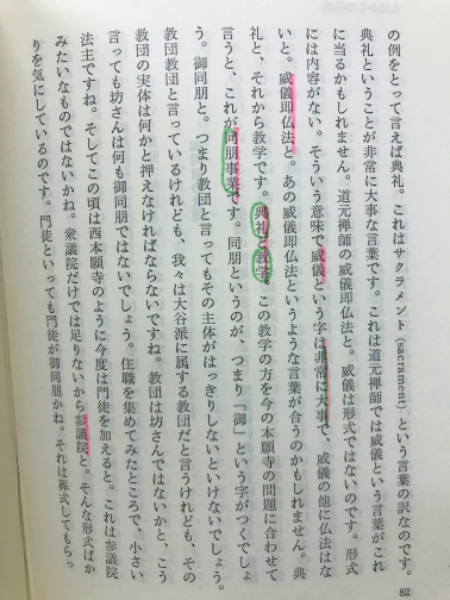 の例をとって言えば典礼。これはサクラメント(sacrament)という言葉の訳なのです。
典礼ということが非常に大事な言葉です。これは道元禅師では威儀という言葉がこれ
に当るかもしれません。道元禅師の威儀即仏法と。威儀は形式ではないのです。形式
には内容がない。そういう意味で威儀という字は非常に大事で、威儀の他に仏法はな
いと。威儀即仏法と。あの威儀即仏法というような言葉が合うのかもしれません。典
礼と、それから教学です。典礼と教学。この教学の方を今の本願寺の問題に合わせて
言うと、これが同朋事業です。同朋というのが、つまり「御」という字がつくでしょ
う。御同朋と。つまり教団と言ってもその主体がはっきりしないといけないでしょう。
教団教団と言っているけれども、我々は大谷派に属する教団だと言うけれども、その
教団の実体は何かと押えなければならないですね。教団は坊さんではないかと、こう
言っても坊さんは何も御同朋ではないでしょう。住職を集めてみたところで、小さい
法主ですね。そしてこの頃は西本願寺のように今度は門徒を加えると。これは参議院
みたいなものではないかね。衆議院だけでは足りないから参議院と。そんな形式ばか
りを気にしているのです。門徒といっても門徒が御同朋かね。それは葬式してもらっ
82